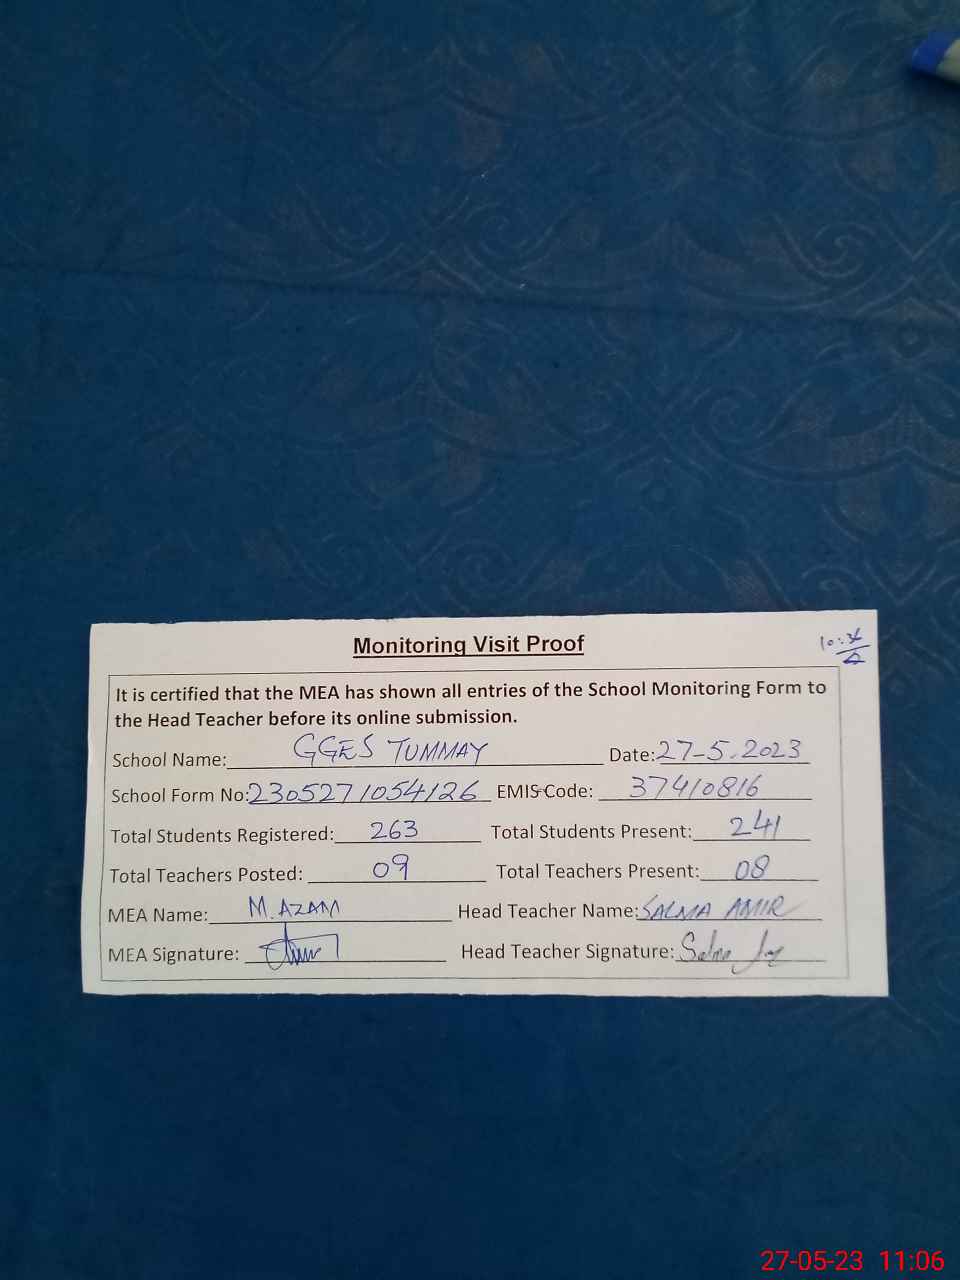 Monitoring Visit Proof
It is certified that the MEA has shown all entries of the School Monitoring Form to
the Head Teacher before its online submission.
School Name: GGES TUMMAY Date: 27-5-2023
School Form No: 2305271054126 EMIS Code: 37410816
Total Students Registered: 263 Total Students Present: 241
Total Teachers Posted: 09 Total Teachers Present: 08
MEA Name: M. AZAM Head Teacher Name: SALMA AMIR
MEA Signature: Head Teacher Signature: Salma
27-05-23 11:06